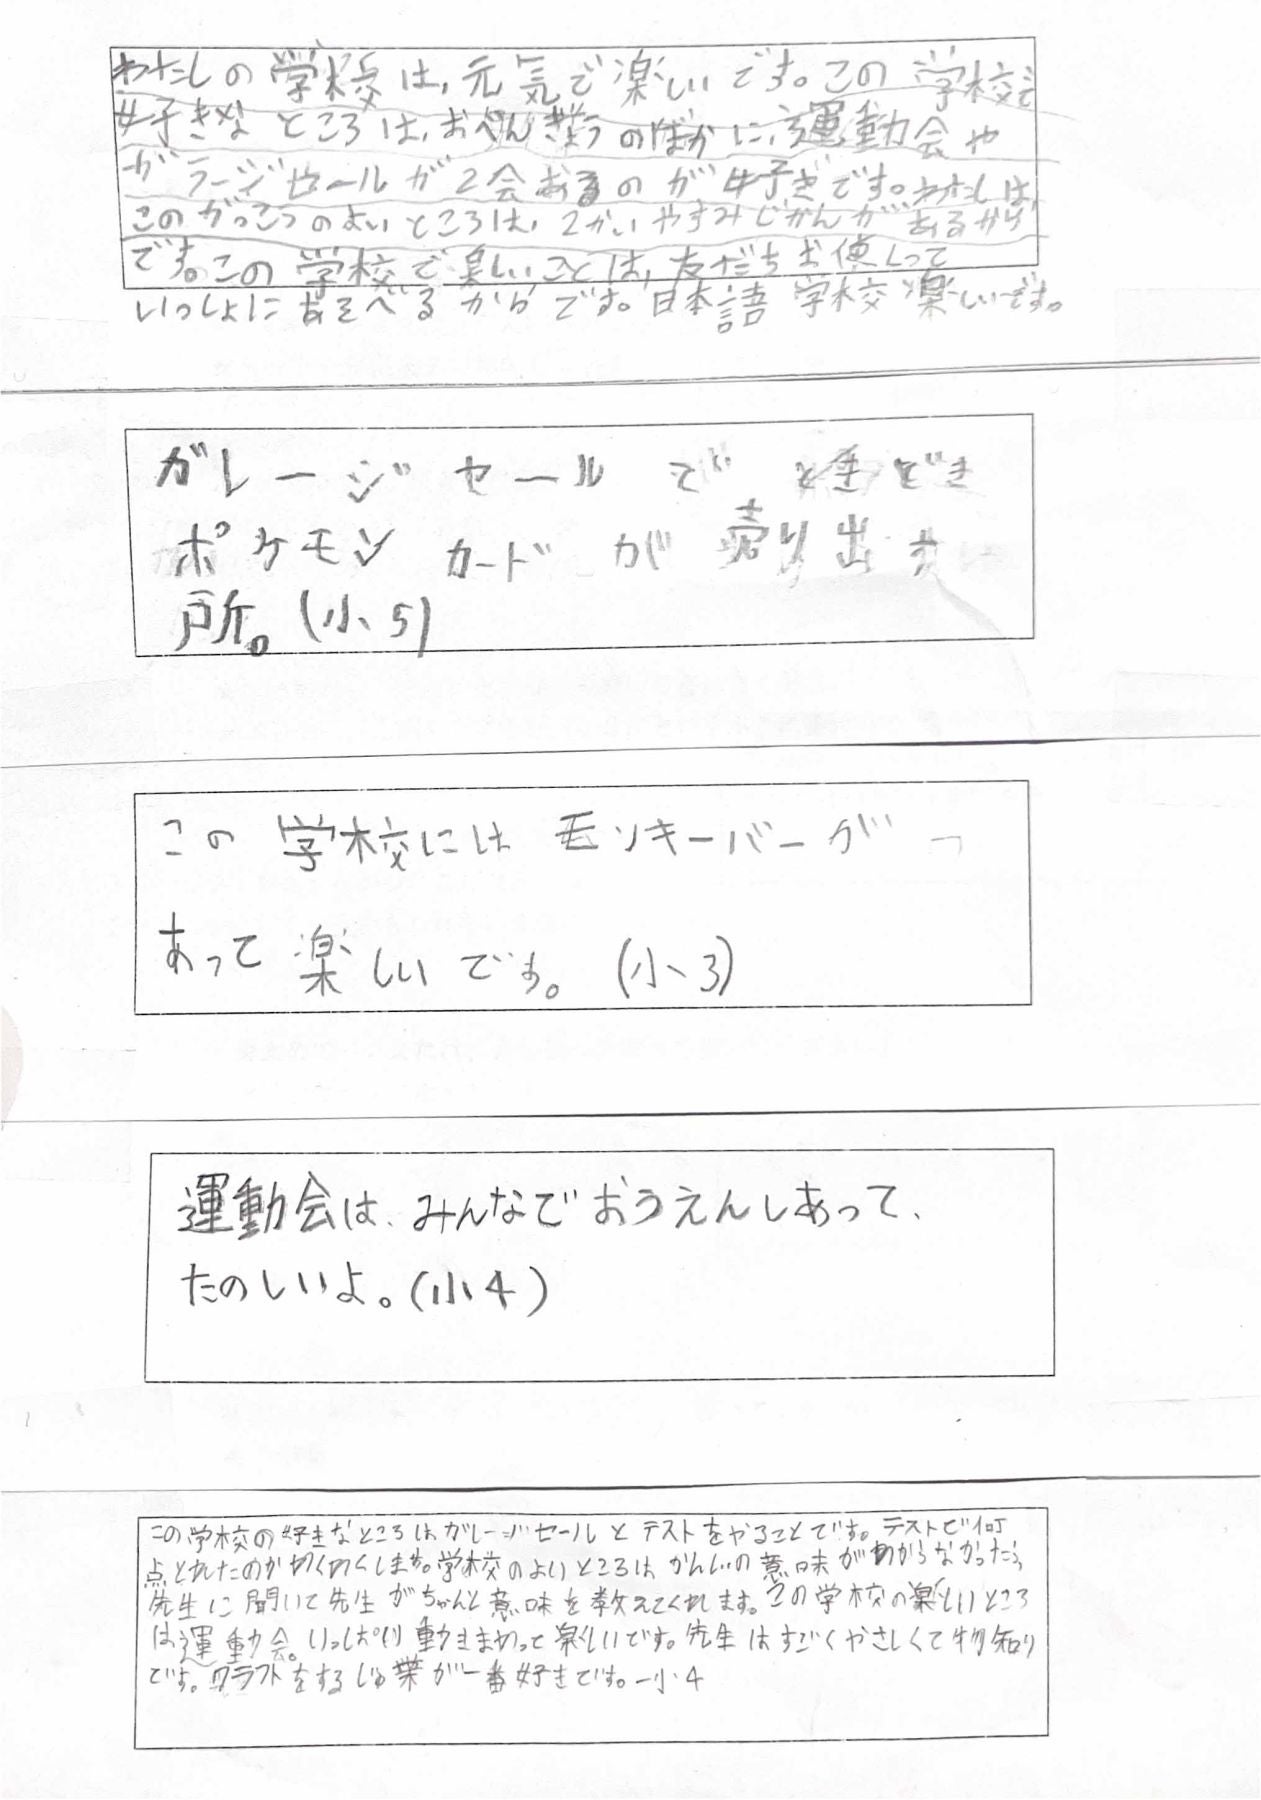 わたしの学校は,元気で楽しいです。この学校で
好きなところは,おべんぎょうのばかに,運動会や
ガラージセールが2会あるのが好ぎです。わたしは,
このがっこうのよいところは,2かいやすみじかんがあるから
です。この学校で楽しいことは,友だちお使しって
いっしょにあそべるからです。日本語学校楽しいです。
ガレージセールで ときどき
ポケモンカードが売り出す
所。(小5)
この学校にはモンキーバーが
あって楽しいです。(小3)
運動会は、みんなでおうえんしあって、
たのしいよ。(小4)
この学校の好きなところはガレージセールとテストをやることです。テストで何
点とれたのかわくわくします。学校のよいところはかんじの意味がわからなかったら
先生に聞いて先生がちゃんと意味を教えてくれます。この学校の楽しいところ
は運動会。いっぱい動きまわって楽しいです。先生はすごくやさしくて物知り
です。クラフトをするじゅ業が一番好きです。ー小4